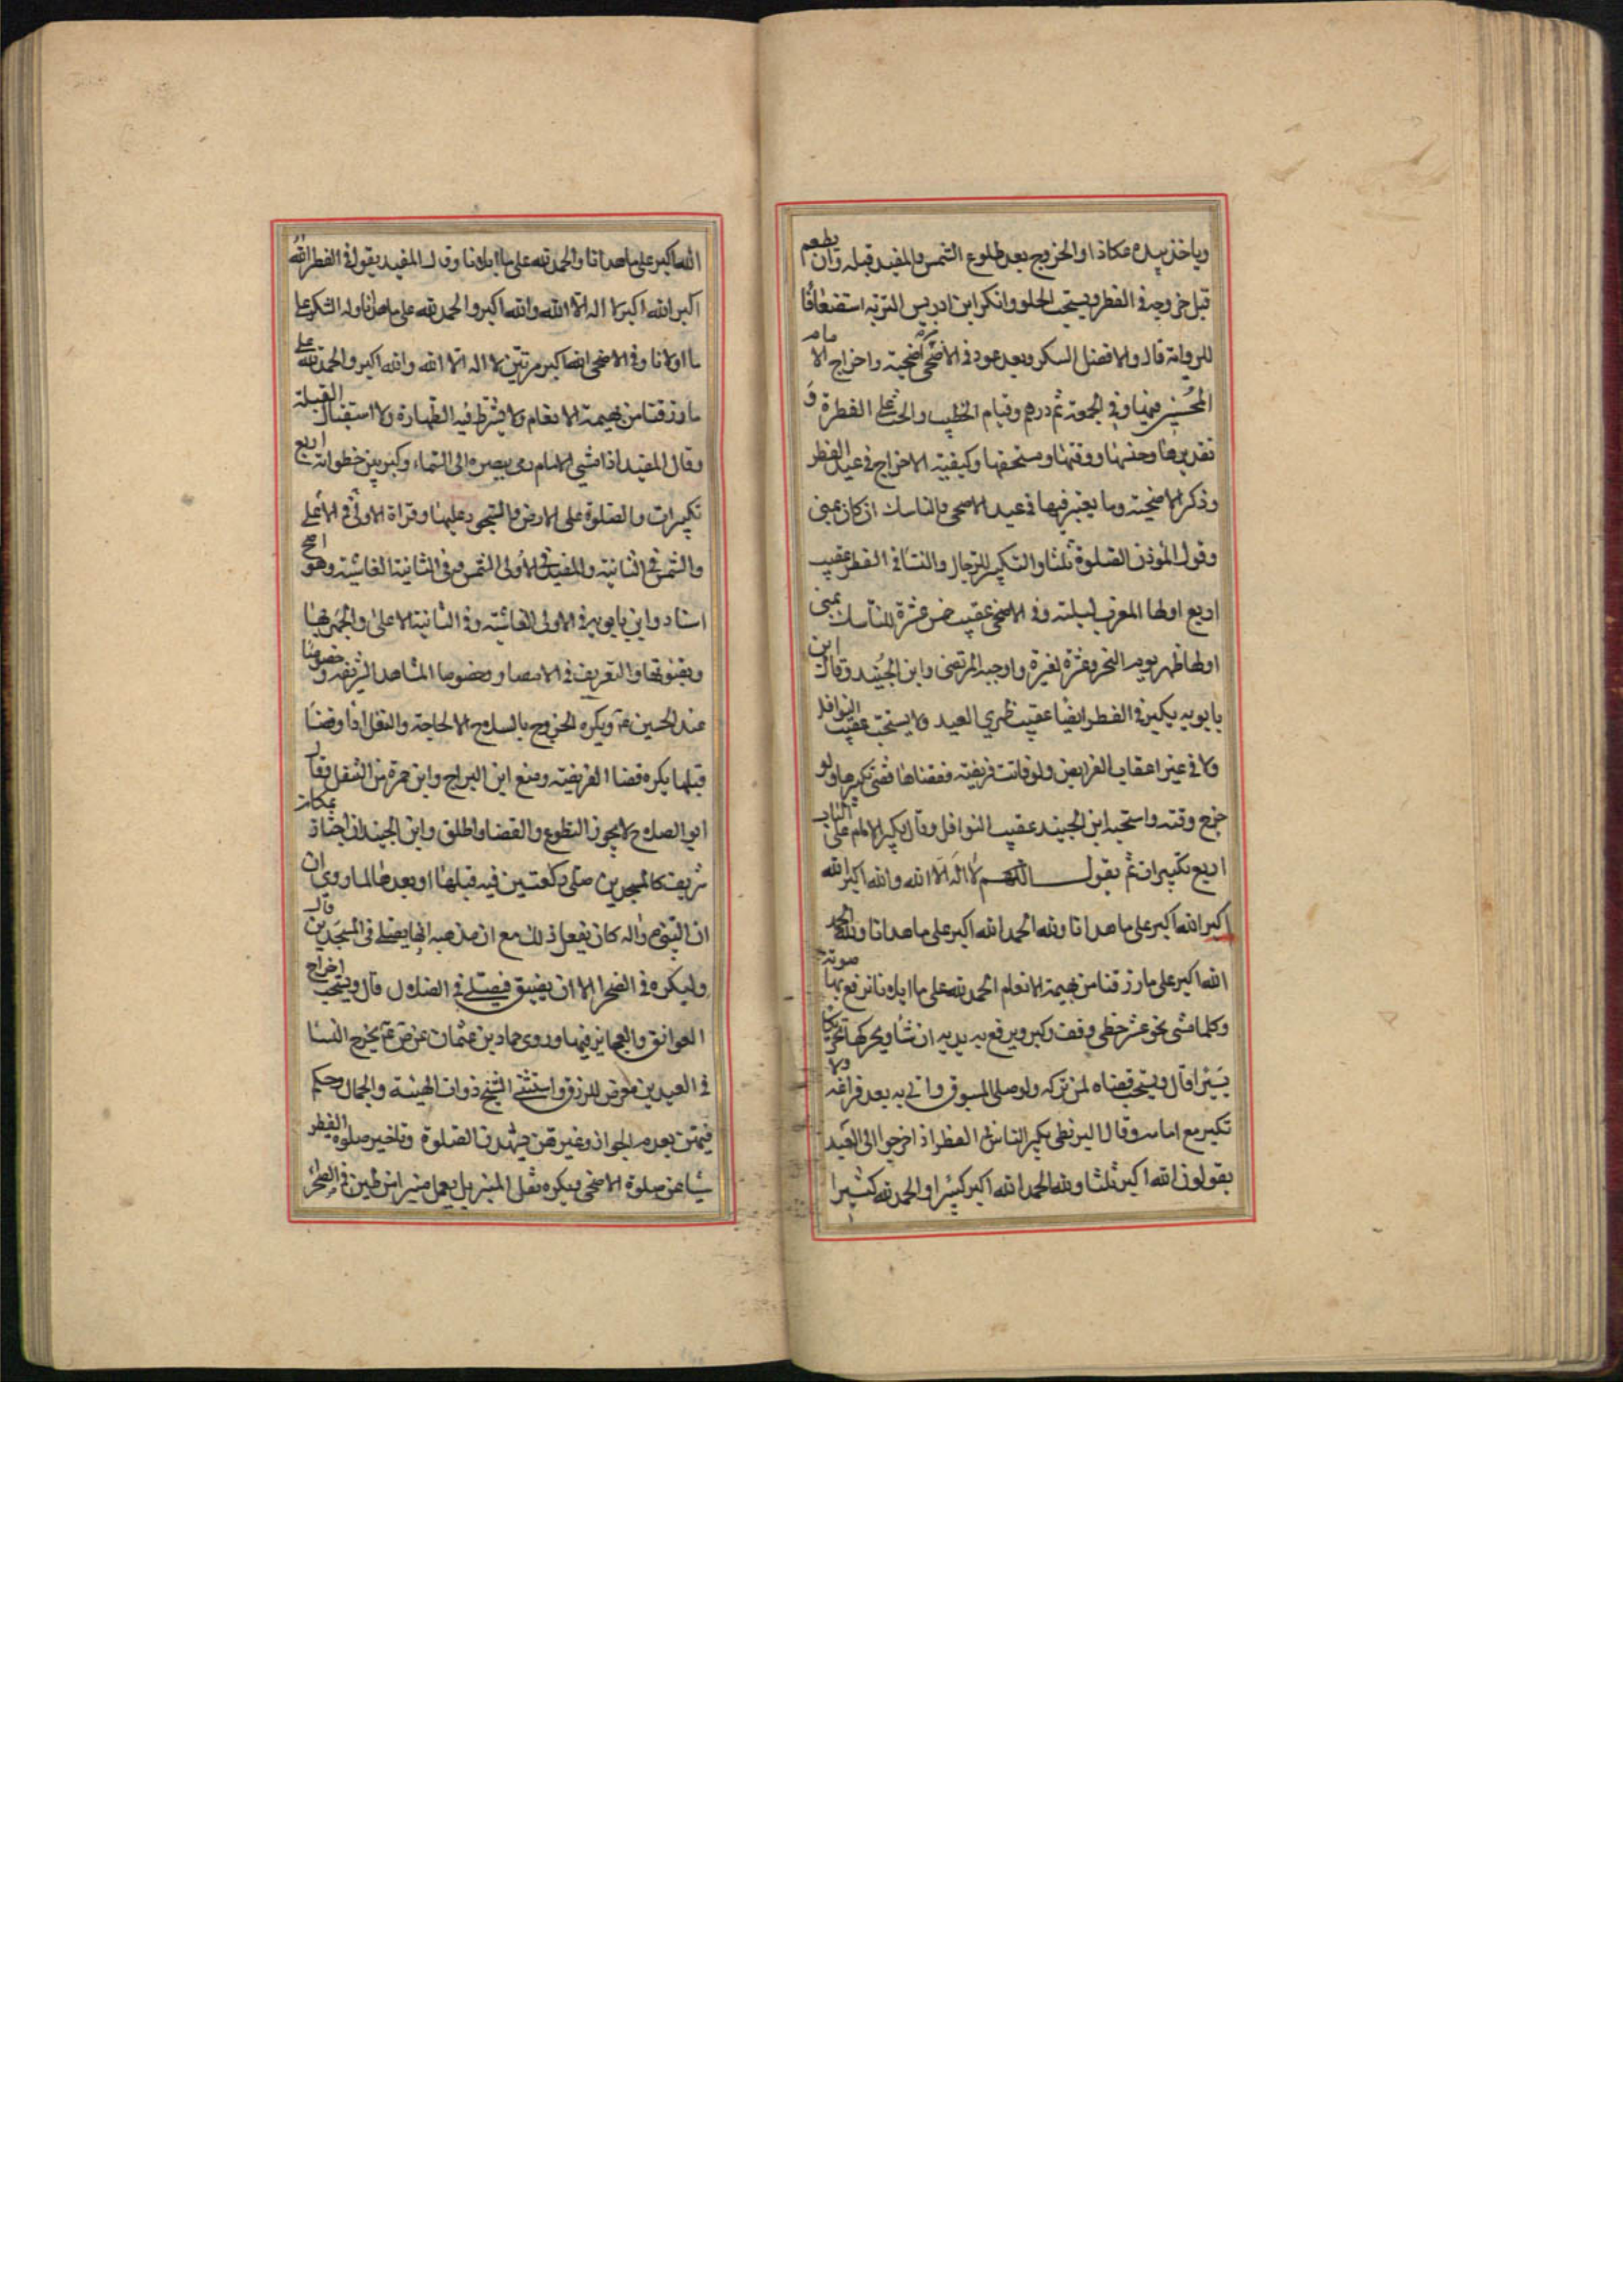 وياخذ بيده عكازا والخروج بعد طلوع الشمس والمفيد قبله وان يطعم
قبل خروجه في الفطر ويستحب الحلو وانكر ابن ادريس التربة استضعافا
للرواية قال والافضل السكر وبعد عوده في الاضحى اضحية واخراج الامام
المحبسين وفي الجمعة ثم درهم وقيام الخطيب والحث على الفطرة و
تقديرها وجنسها ووقتها ومستحقها وكيفية الاخراج في عيد الفطر
وذكر الاضحية وما يعتبر فيها في عيد الاضحى والمناسك ان كان بمنى
وقول المؤذن الصلوة ثلثا والتكبير للرجال والنسا في الفطر عقيب
اربع اولها المغرب ليلته وفي الاضحى عقيب خمس عشرة للناسك بمنى
اولها ظهر يوم النحر وعشرة لغيره واوجبه المرتضى وابن الجنيد وقال ابن
بابويه يكبر في الفطر ايضا عقيب ظهري العيد ولا يستحب عقيب النوافل
ولا في غير اعقاب الفرايض ولو فاتت فريضة فقضاها قضى تكبيرها ولو
خرج وقته واستحبه ابن الجنيد عقيب النوافل وقال يكبر الامام على الباب
اربع تكبيرات ثم يقول اللهم لا اله الا الله والله اكبر الله
اكبر الله اكبر على ما هدانا ولله الحمد الله اكبر على ما هدانا ولله الحمد
الله اكبر على ما رزقنا من بهيمة الانعام الحمد لله على ما ابلانا نرفع بها صوته
وكلما مشى نحو عشر خطى وقف وكبر ويرفع به يديه ان شا ويحركها تحريكا
يسيرا قال ويستحب قضاه لمن تركه ولو صلى المسبوق واتى به بعد فراغه ولا
تكبير مع امامه وقال البزنطي يكبر الناس في الفطر اذا خرجوا الى العيد
يقولون الله اكبر ثلثا ولله الحمد الله اكبر كبيرا والحمد لله كثيرا
الله اكبر على ما هدانا والحمد لله على ما ابلانا وقال المفيد يقول في الفطر الله
اكبر الله اكبر لا اله الا الله والله اكبر والحمد لله على ما هدانا وله الشكر على
ما اولانا وفي الاضحى الله اكبر مرتين لا اله الا الله والله اكبر والحمد لله على
ما رزقنا من بهيمة الانعام ولا يشترط فيه الطهارة ولا استقبال القبلة
وقال المفيد اذا مشى الامام رمى ببصره الى السماء وكبر بين خطواته اربع
تكبيرات والصلوة على الارض والسجود عليها وقراة الاولى في الاعلى
والشمس في الثانية والمفيد في الاولى الشمس وفي الثانية الغاشية وهو اصح
اسنادا وابن بابويه في الاولى الغاشية وفي الثانية الاعلى والجهر بها
وبقنوتها والتعريف في الامصار وخصوصا المشاهد الشريفة وخصوصا
عند الحسين ع ويكره الخروج بالسلاح الا لحاجة والنفل اذا وقضا
قبلها يكره قضا الفريضة ومنع ابن البراج وابن حمزة من التنفل وقال
ابو الصلاح لا يجوز التطوع والقضا واطلق وابن الجنيد ان اجتاز بمكان
شريف كالمسجدين صلى ركعتين فيه قبلها او بعدها لما روي ان
ان النبي ص واله كان يفعل ذلك مع ان مذهبه انها يصلى في المسجدين قال
وليكره في الضحرا الا ان يضيق فيصلي في الضلال قال ويستحب اخراج
العواتق والعجايز فيها وروى حماد بن عثمان عن ص ع يخرج النسا
في العيدين تعرض للرزق واستثنى الشيخ ذوات الهيئة والجمال وحكم
فيهن بعدم الجواز وغيرهن يشهدن الصلوة وتاخير صلوة الفطر
شيا عن صلوة الاضحى ويكره نقل المنبر بل يعمل منبر من طين في الصحرا